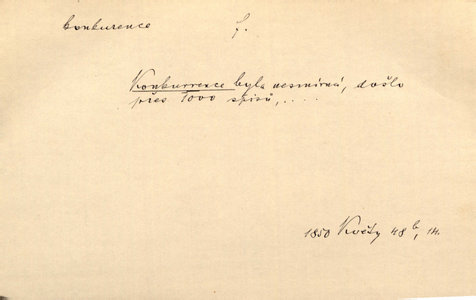 konkurence f.
Konkurrence byla nesmírná, došlo
přes 1000 spisů, ....
1850 Květy 48 b, 14.